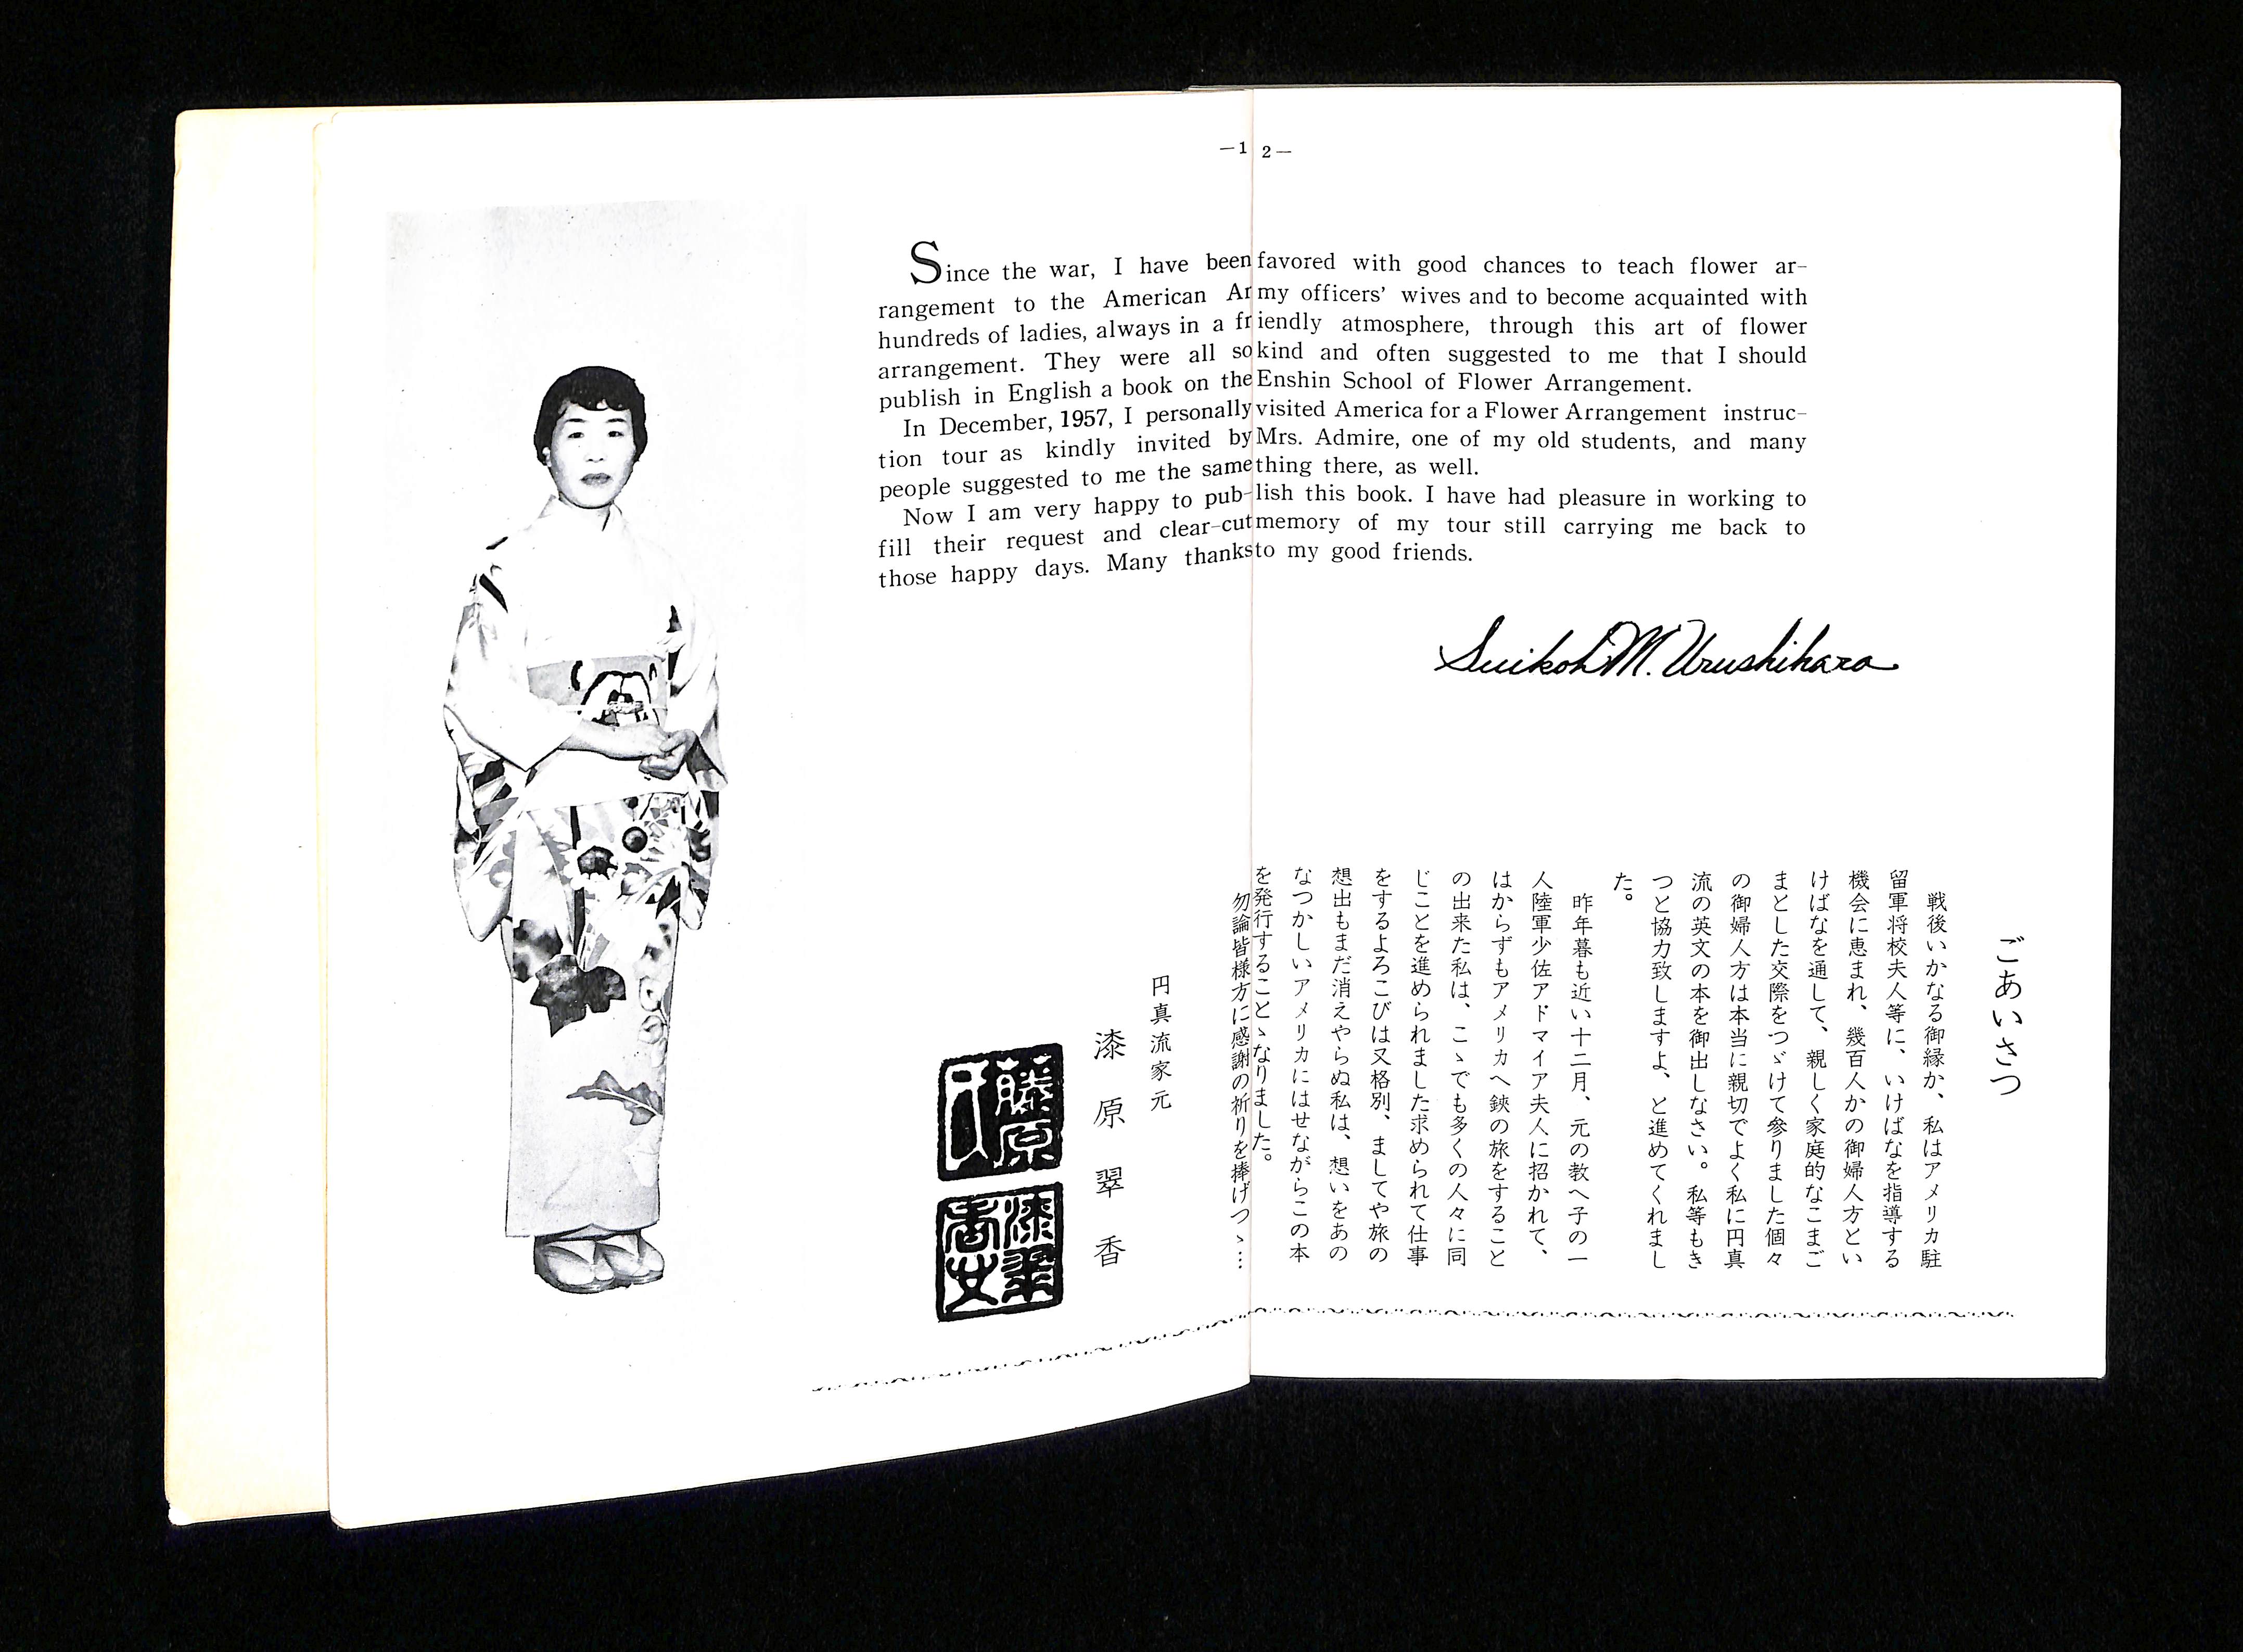 —1 2—
Since the war, I have been favored with good chances to teach flower ar-
rangement to the American Army officers' wives and to become acquainted with
hundreds of ladies, always in a friendly atmosphere, through this art of flower
arrangement. They were all so kind and often suggested to me that I should
publish in English a book on the Enshin School of Flower Arrangement.
In December, 1957, I personally visited America for a Flower Arrangement instruc-
tion tour as kindly invited by Mrs. Admire, one of my old students, and many
people suggested to me the same thing there, as well.
Now I am very happy to pub-lish this book. I have had pleasure in working to
fill their request and clear-cut memory of my tour still carrying me back to
those happy days. Many thanks to my good friends.
Suikoh M. Urushihara
ごあいさつ
戦後いかなる御縁か、私はアメリカ駐
留軍将校夫人等に、いけばなを指導する
機会に恵まれ、幾百人かの御婦人方とい
けばなを通して、親しく家庭的なこまご
まとした交際をつゞけて参りました個々
の御婦人方は本当に親切でよく私に円真
流の英文の本を御出しなさい。私等もき
つと協力致しますよ、と進めてくれまし
た。
昨年暮も近い十二月、元の教へ子の一
人陸軍少佐アドマイア夫人に招かれて、
はからずもアメリカへ鋏の旅をすること
の出来た私は、こゝでも多くの人々に同
じことを進められました求められて仕事
をするよろこびは又格別、ましてや旅の
想出もまだ消えやらぬ私は、想いをあの
なつかしいアメリカにはせながらこの本
を発行することゝなりました。
勿論皆様方に感謝の祈りを捧げつゝ…
円真流家元
漆原翠香
藤原
氏
漆翠
香女